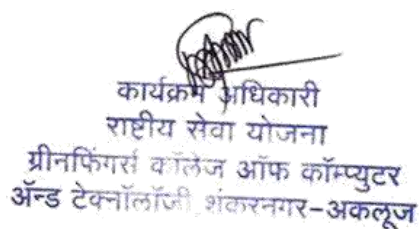 कार्यक्रम अधिकारी
राष्ट्रीय सेवा योजना
ग्रीनफिंगर्स कॉलेज ऑफ कॉम्प्युटर
ॲन्ड टेक्नॉलॉजी शंकरनगर-अकलूज